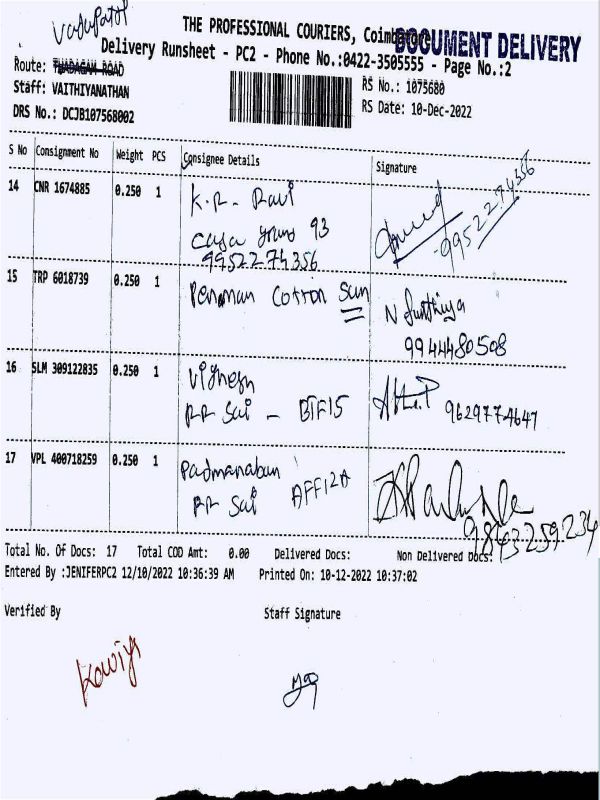 THE PROFESSIONAL COURIERS, Coimbatore
DOCUMENT DELIVERY
Delivery Runsheet - PC2 - Phone No.:0422-3505555 - Page No.:2
Route: THADAGAM ROAD
RS No.: 1075680
Staff: VAITHIYANATHAN
RS Date: 10-Dec-2022
DRS No.: DCJB107568002
S No Consignment No Weight PCS Consignee Details Signature
14 CNR 1674885 0.250 1 K.R. Ravi
93
9952274356
9952274356
15 TRP 6018739 0.250 1 Cotton Sun
9944480508
16 SLM 309122835 0.250 1 Vignesh
RR Sai - BTF15
9629774647
17 VPL 400718259 0.250 1 Padmanaban
RR Sai AFF12A
9843259234
Total No. Of Docs: 17 Total COD Amt: 0.00 Delivered Docs: Non Delivered Docs:
Entered By :JENIFERPC2 12/10/2022 10:36:39 AM Printed On: 10-12-2022 10:37:02
Verified By Staff Signature